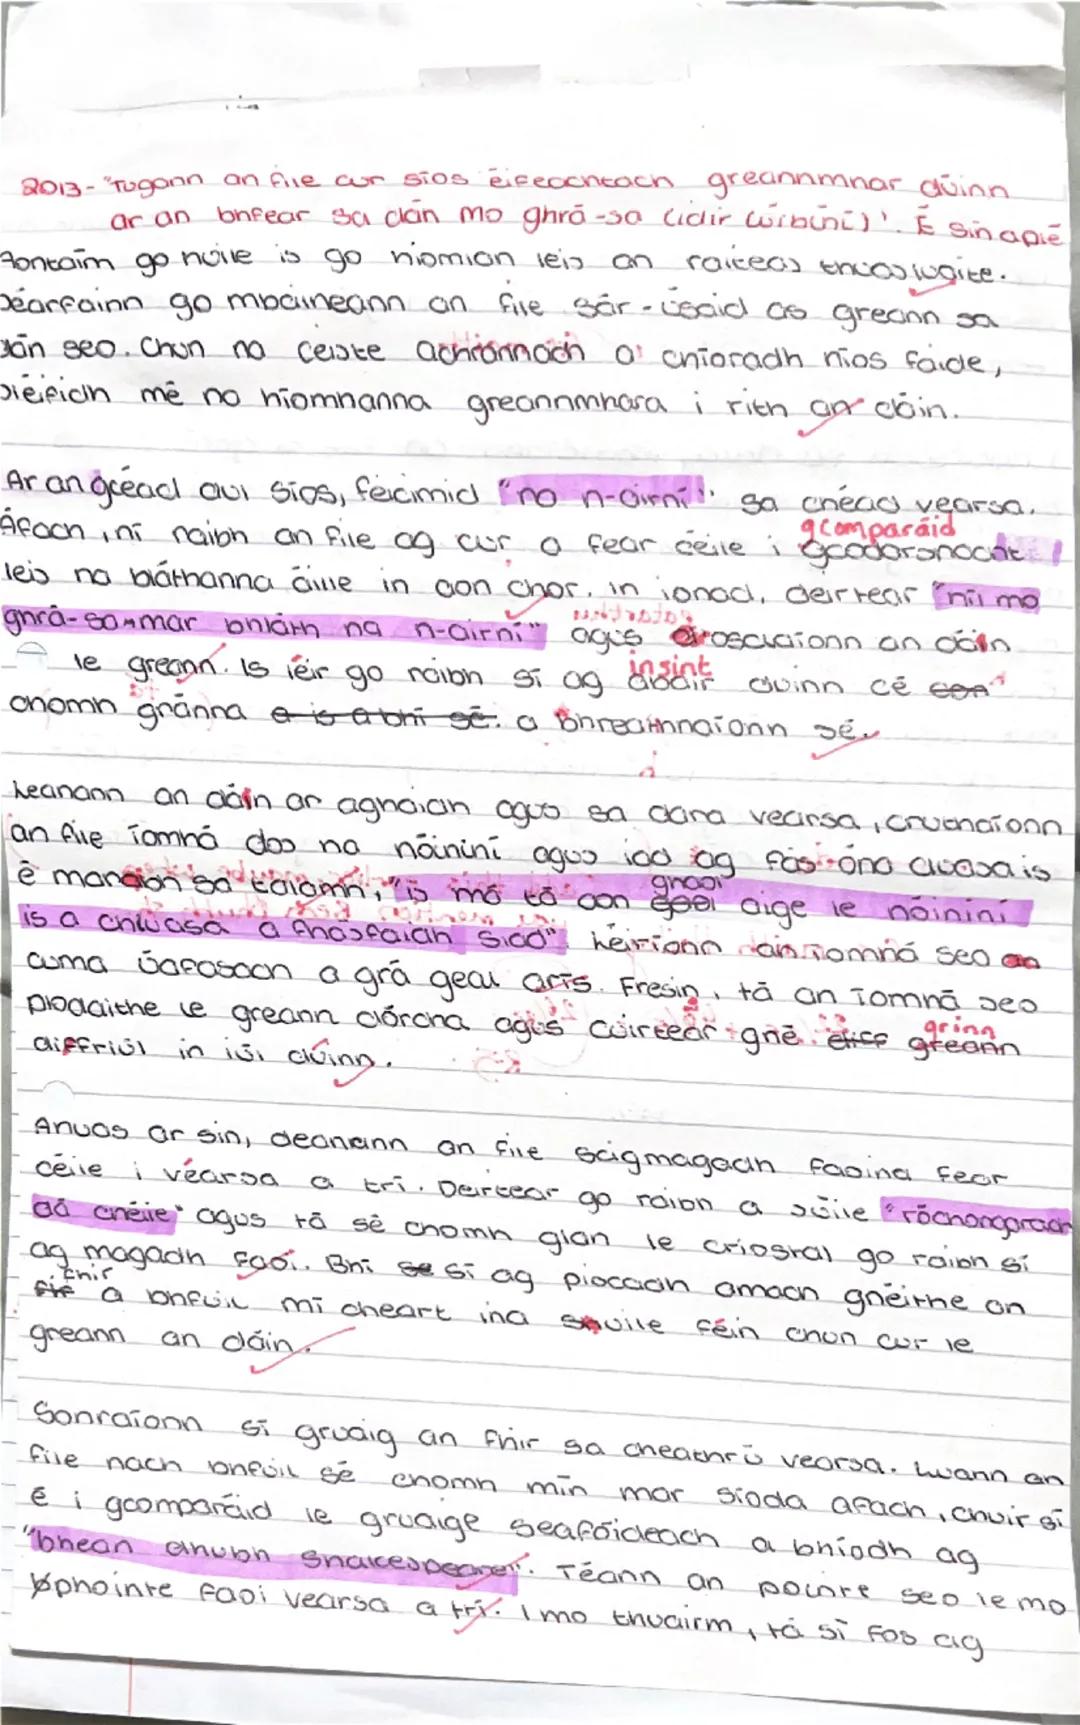 2013- "Tugann an file cur síos éifeachtach greannmhar dúinn
ar an bhfear sa dán mo ghrá-sa (idir lúibíní)'. É sin a plé
Aontaím go huile is go hiomlan leis an raiteas thuasluaite.
Déarfainn go mbaineann an file sár-úsáid as greann sa
dán seo. Chun na ceiste achrannach a chíoradh níos faide,
pléifidh mé na híomhanna greannmhara i rith an dáin.
Ar an gcéad dul síos, feicimid "na n-airní" sa chéad vearsa.
Áfach, ní raibh an file ag cur a fear céile i gcomparáid
leis na bláthanna áille in aon chor. In ionad, deirtear "níl mo
ghrá-sa mar bhláth na n-airní" agus osclaíonn an dán
le greann. Is léir go raibh sí ag insint dúinn cé
chomh gránna a is a bhí sé. a bhreathnaíonn sé.
Leanann an dán ar aghaidh agus sa dara vearsa, cruthaíonn
an file íomhá dos na nóiníní agus iad ag fás óna cluasa is
é marbh sa talamh, "is má tá aon ghaoi aige le nóiníní
is a chluasa a fhásfaidh siad" Léiríonn an íomhá seo
cuma uafásach a grá geal arís. Freisin, tá an íomhá seo
plódaithe le greann dórcha agus cuirtear gné grinn
diffriúl in iúl dúinn.
Anuas ar sin, deanann an file scigmagadh faoina fear
céile i véarsa a trí. Deirtear go raibh a súile "róchongarach
dá chéile" agus tá sé chomh glan le criostal go raibh sí
ag magadh faoi. Bhí se sí ag piocadh amach gnéithe an
fhir a bhfuil mí cheart ina shuile féin chun cur le
greann an dáin.
Sonraíonn sí gruaig an fhir sa cheathrú vearsa. Luann an
file nach bhfuil sé chomh mín mar síoda afach, chuir sí
é i gcomparáid le gruaige seafóideach a bhíodh ag
"bhean dhubh Shakespeare". Téann an pointe seo le mo
phointe faoi vearsa a trí. I mo thuairm, tá sí fos ag